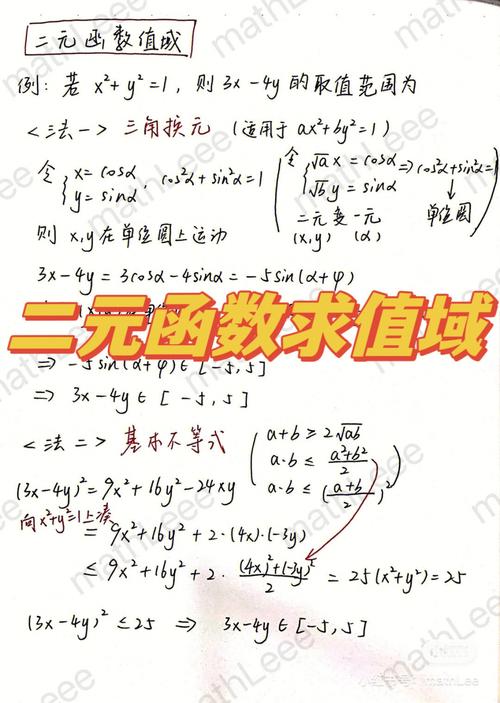 二元函数值域
例: 若 x²+y²=1, 则 3x-4y 的取值范围为
<法一> 三角换元 (适用于 ax²+by²=1)
令 { x=cosα, y=sinα , cos²α+sin²α=1
( 令 { √a x=cosα, √b y=sinα ⇒ cos²α+sin²α=1
↓
单位圆
二元变一元
(x,y) (α) )
则 x,y 在单位圆上运动
3x-4y=3cosα-4sinα=-5sin(α+φ)
二元函数求值域
⇒ -5sin(α+φ)∈[-5,5]
⇒ 3x-4y∈[-5,5]
<法二> 基本不等式
( a+b≥2√ab
a·b≤(a²+b²)/2
a·b≤((a+b)/2)² )
(3x-4y)²=9x²+16y²-24xy
向x²+y²=1上凑
=9x²+16y²+2·(4x)·(-3y)
≤9x²+16y²+2·((4x)²+(-3y)²)/2=25(x²+y²)=25
(3x-4y)²≤25 ⇒ 3x-4y∈[-5,5]
mathLeee
小红书号: mathLeee